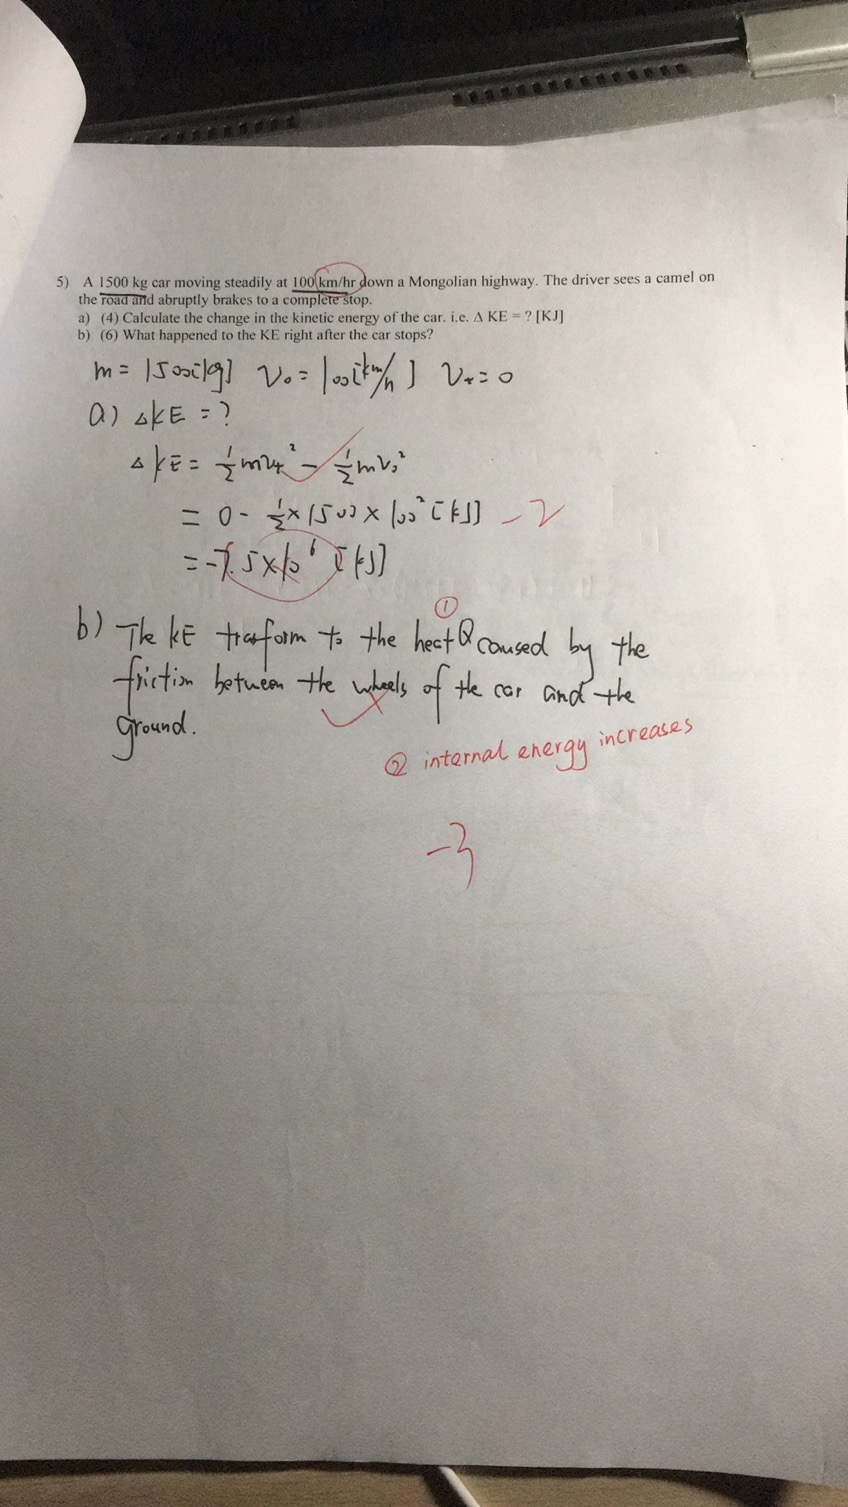 5) A 1500 kg car moving steadily at 100 km/hr down a Mongolian highway. The driver sees a camel on
the road and abruptly brakes to a complete stop.
a) (4) Calculate the change in the kinetic energy of the car. i.e. Δ KE = ? [KJ]
b) (6) What happened to the KE right after the car stops?
m = 1500[kg] V₀ = 100[km/h] V₊ = 0
a) △KE = ?
△KE = ½mV₊² - ½mV₀²
= 0 - ½ × 1500 × 100² [KJ] -2
= -7.5×10⁶ [KJ]
①
b) The KE trasform to the heat Q caused by the
friction between the wheels of the car and the
ground.
② internal energy increases
-3